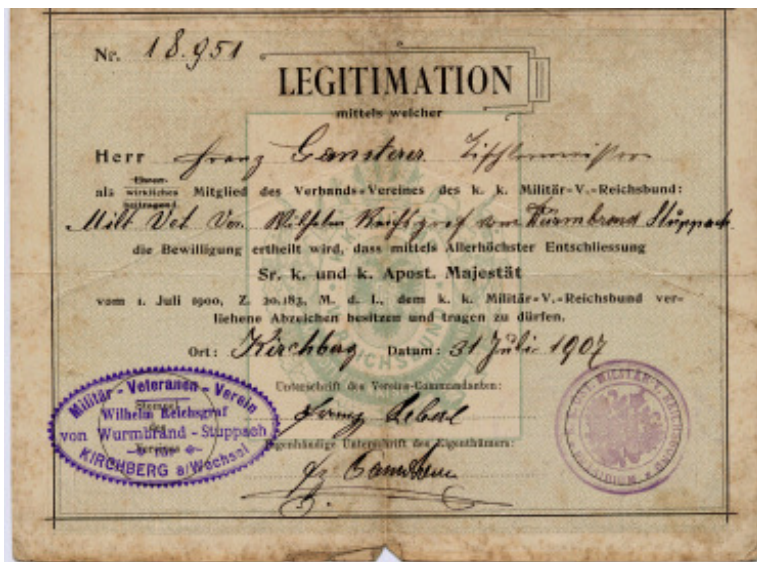 Nr. 18.951
LEGITIMATION
mittels welcher
Herr Franz Gansterer Tischlermeister
Ehren-
als wirkliches Mitglied des Verbands-Vereines des k. k. Militär-V.-Reichsbund:
beitragend.
Milt Vet Ver. Wilhelm Reichsgraf von Wurmbrand Stuppach
die Bewilligung ertheilt wird, dass mittels Allerhöchster Entschliessung
Sr. k. und k. Apost. Majestät
vom 1. Juli 1900, Z. 20.183, M. d. I., dem k. k. Militär-V.-Reichsbund ver-
liehene Abzeichen besitzen und tragen zu dürfen.
Ort: Kirchberg Datum: 31 Juli 1907
Unterschrift des Vereins-Commandanten:
Franz
Eigenhändige Unterschrift des Eigenthümers:
Fr. Gansterer
Militär-Veteranen-Verein
Wilhelm Reichsgraf
von Wurmbrand-Stuppach
für
KIRCHBERG a/Wechsel
Stempel
des
Vereines
REICHSBUND